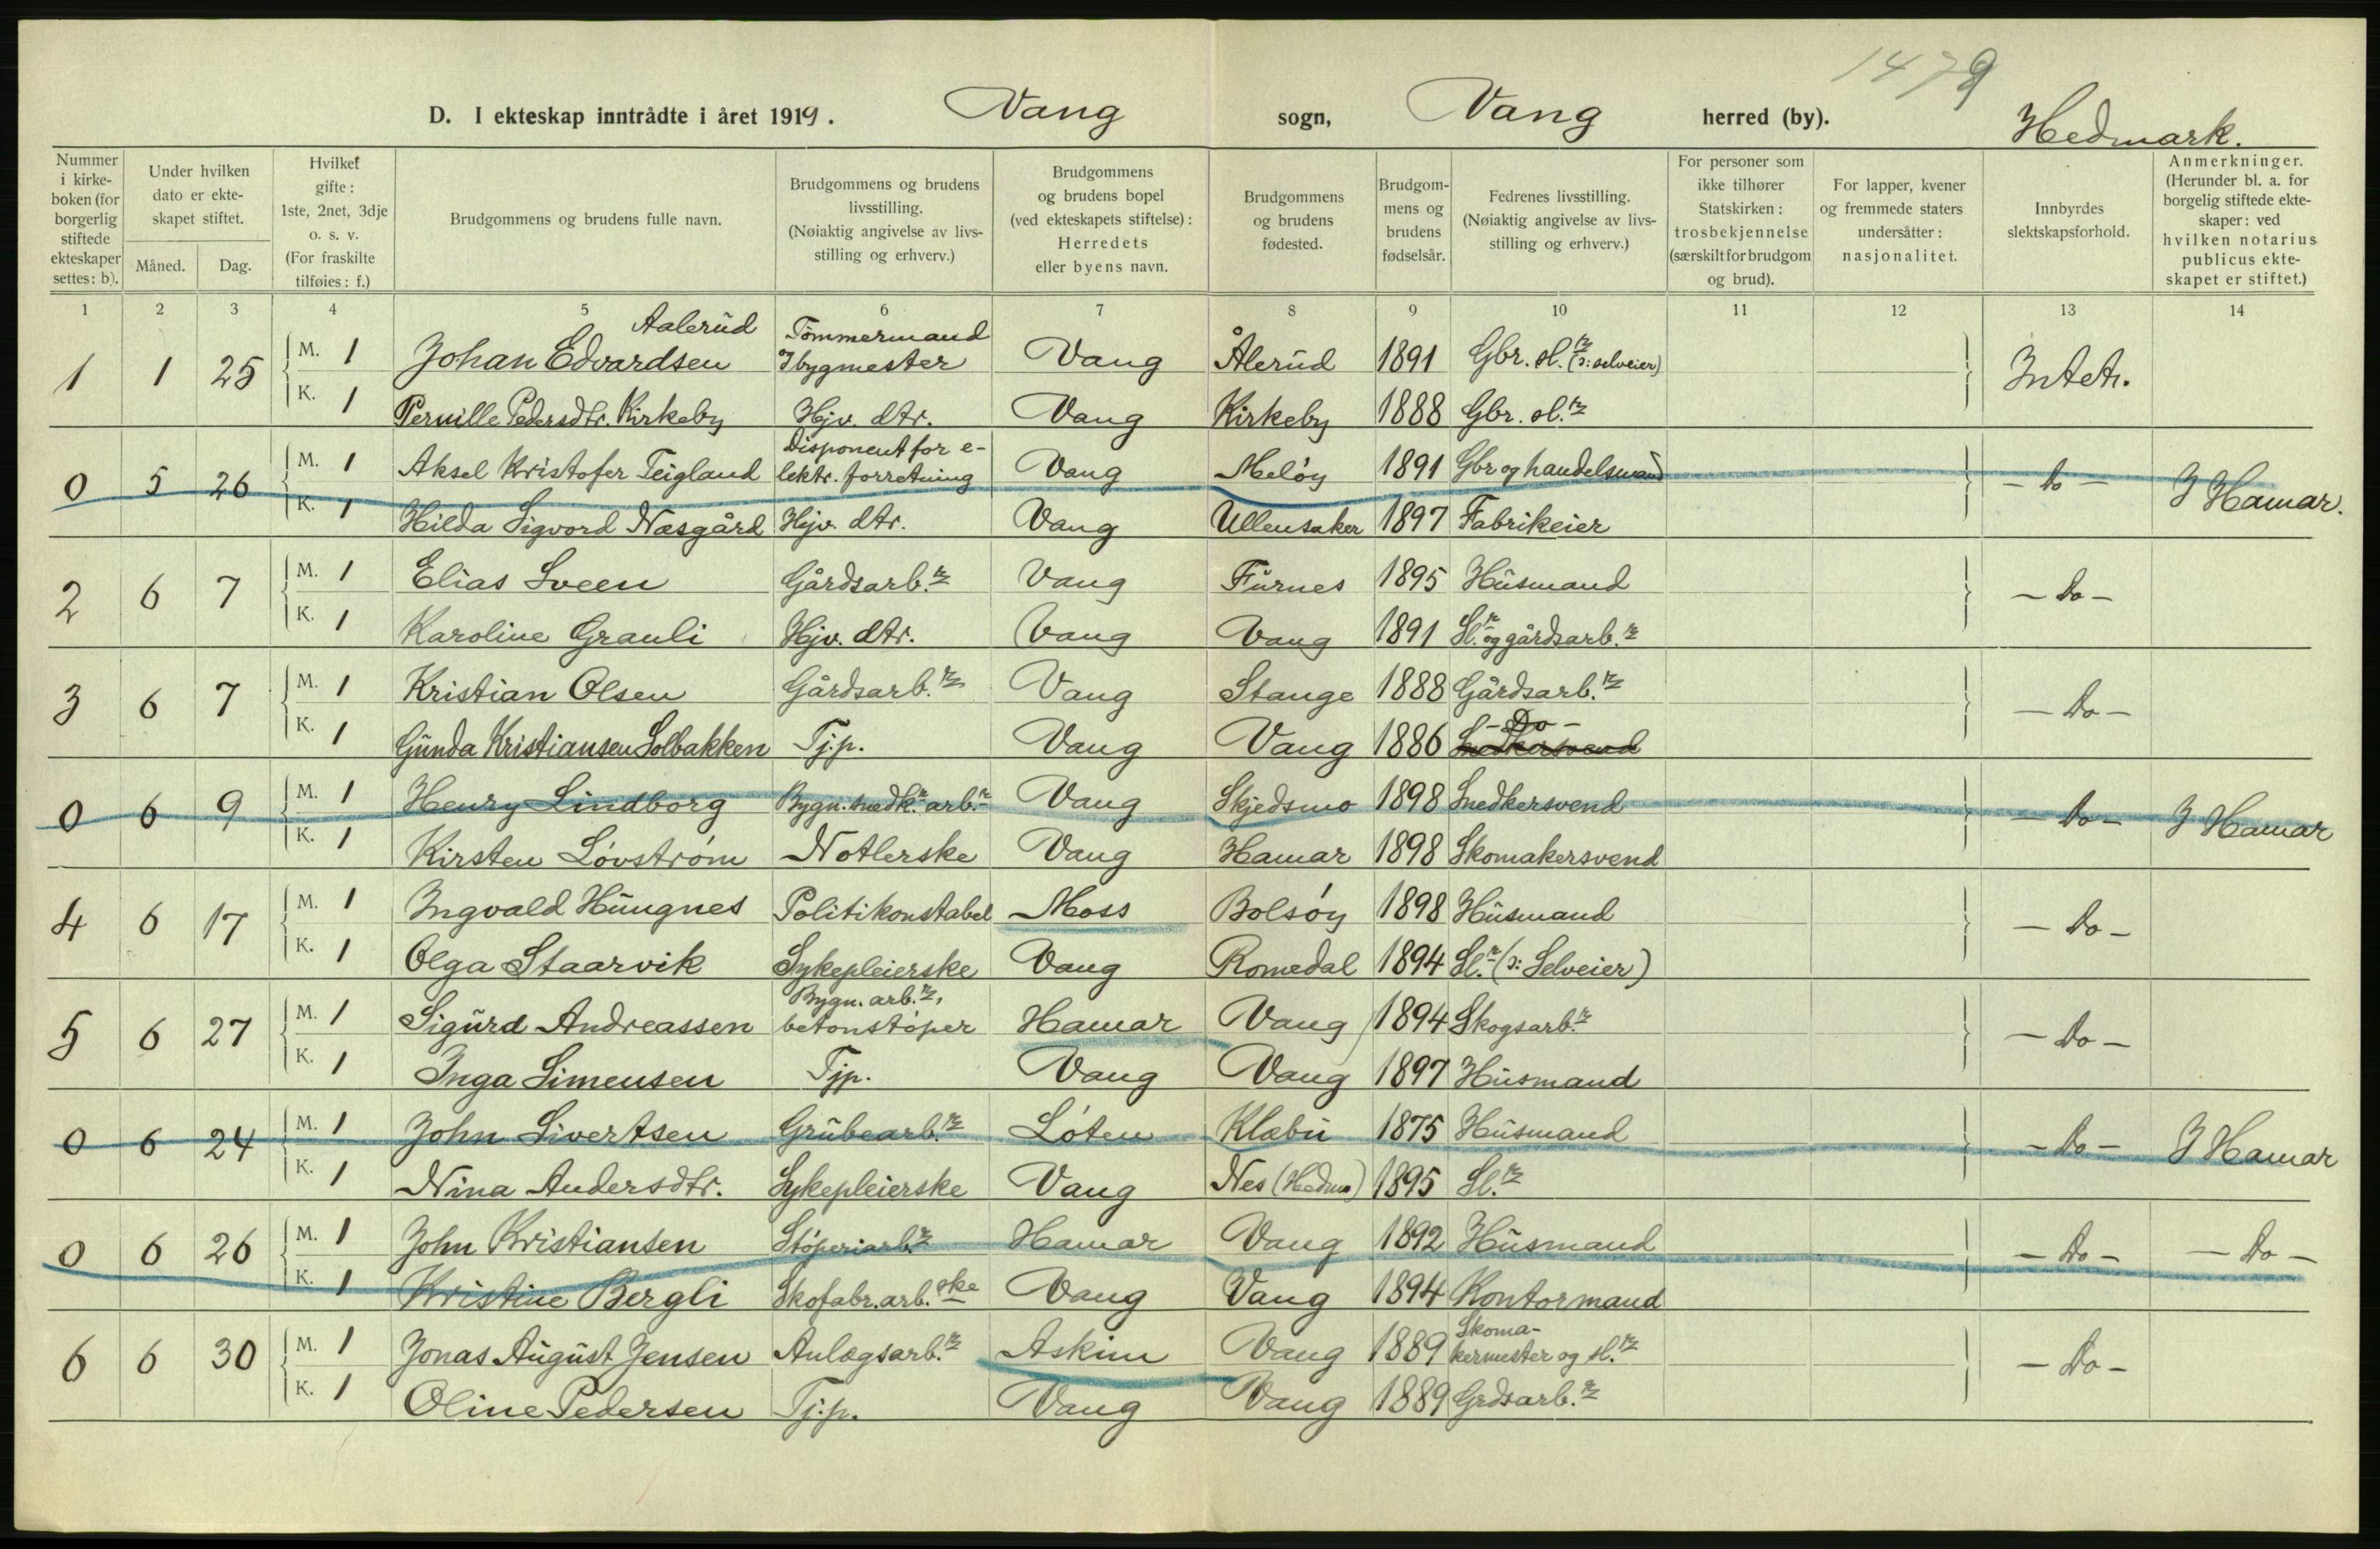 1479
D. I ekteskap inntrådte i året 1919. Vang sogn, Vang herred (by).
Hedmark.
Nummer i kirkeboken (for borgerlig stiftede ekteskaper settes: b).
Under hvilken dato er ekteskapet stiftet.
Måned. Dag.
Hvilket gifte: 1ste, 2net, 3dje o. s. v. (For fraskilte tilføies: f.)
Brudgommens og brudens fulle navn.
Brudgommens og brudens livsstilling. (Nøiaktig angivelse av livsstilling og erhverv.)
Brudgommens og brudens bopel (ved ekteskapets stiftelse): Herredets eller byens navn.
Brudgommens og brudens fødested.
Brudgommens og brudens fødselsår.
Fedrenes livsstilling. (Nøiaktig angivelse av livsstilling og erhverv.)
For personer som ikke tilhører Statskirken: trosbekjennelse (særskilt for brudgom og brud).
For lapper, kvener og fremmede staters undersåtter: nasjonalitet.
Innbyrdes slektskapsforhold.
Anmerkninger. (Herunder bl. a. for borgelig stiftede ekteskaper: ved hvilken notarius publicus ekteskapet er stiftet.)
1 2 3 4 5 6 7 8 9 10 11 12 13 14
Aalerud Tømmermand
1 1 25 M. 1 Johan Edvardsen Ibygmester Vang Ålerud 1891 Gbr. sl.r (ɔ: selveier) Intet.
K. 1 Pernille Pedersdtr. Kirkeby Hjv. dtr. Vang Kirkeby 1888 Gbr. sl.r
Disponent for e-
0 5 26 M. 1 Aksel Kristofer Teigland lektr. forretning Vang Meløy 1891 Gbr og handelsmand - Do - I Hamar.
K. 1 Hilda Sigvord Næsgård Hjv. dtr. Vang Ullensaker 1897 Fabrikeier
2 6 7 M. 1 Elias Sveen Gårdsarb.r Vang Furnes 1895 Husmand - Do -
K. 1 Karoline Grauli Hjv. dtr. Vang Vang 1891 Sl.r og gårdsarb.r
3 6 7 M. 1 Kristian Olsen Gårdsarb.r Vang Stange 1888 Gårdsarb.r - Do -
- Do -
K. 1 Gunda Kristiansen Solbakken Tj.p. Vang Vang 1886 Snedkersvend
0 6 9 M. 1 Henry Lindborg Bygn. snedk.r arb.r Vang Skjedsmo 1898 Snedkersvend - Do - I Hamar
K. 1 Kirsten Løvstrøm Notlerske Vang Hamar 1898 Skomakersvend
4 6 17 M. 1 Ingvald Hungnes Politikonstabel Moss Bolsøy 1898 Husmand - Do -
K. 1 Olga Staarvik Sykepleierske Vang Romedal 1894 Sl.r (ɔ: Selveier)
Bygn. arb.r,
5 6 27 M. 1 Sigurd Andreassen betonstøper Hamar Vang 1894 Skogsarb.r - Do -
K. 1 Inga Simensen Tjp. Vang Vang 1897 Husmand
0 6 24 M. 1 John Sivertsen Grubearb.r Løten Klæbu 1875 Husmand - Do - I Hamar
K. 1 Nina Andersdtr. Sykepleierske Vang Nes (Hedm) 1895 Sl.r
0 6 26 M. 1 John Kristiansen Støperiarb.r Hamar Vang 1892 Husmand - Do - - Do -
K. 1 Kristine Bergli Skofabr.arb.ske Vang Vang 1894 Kontormand
Skoma-
6 6 30 M. 1 Jonas August Jensen Anlægsarb.r Askim Vang 1889 kermester og sl.r - Do -
K. 1 Oline Pedersen Tj.p. Vang Vang 1889 Grdsarb.r